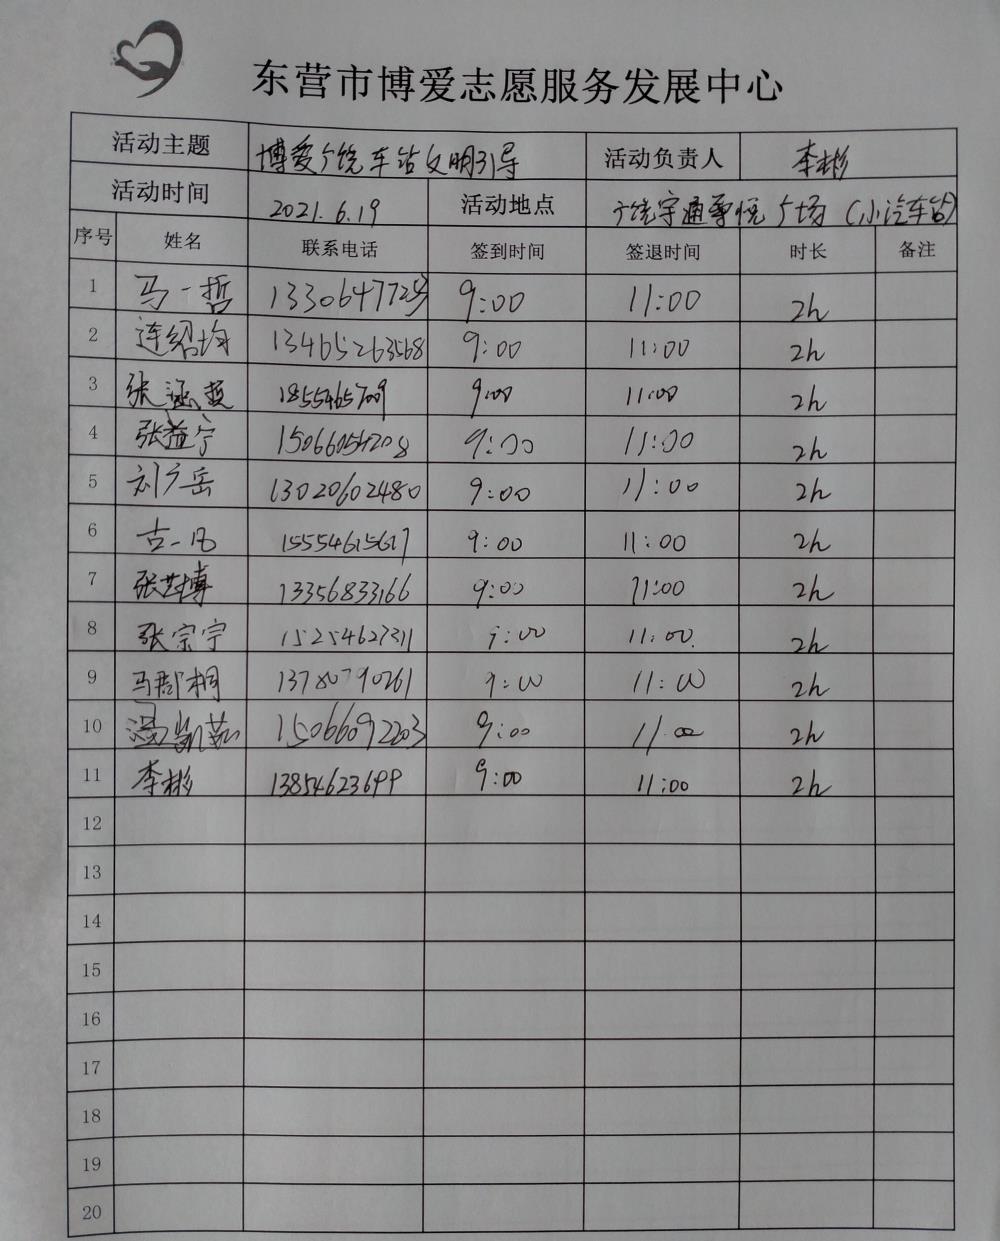 东营市博爱志愿服务发展中心
活动主题 博爱广饶车站文明引导 活动负责人 李彬
活动时间 2021.6.19 活动地点 广饶宇通尊悦广场(小汽车站)
序号 姓名 联系电话 签到时间 签退时间 时长 备注
1 马一哲 9:00 11:00 2h
2 连绍均 13465263568 9:00 11:00 2h
3 张涵 9:00 11:00 2h
4 张益宁 15066054208 9:00 11:00 2h
5 刘广岳 13020602480 9:00 11:00 2h
6 古一凡 15554615617 9:00 11:00 2h
7 张芸博 13356833166 9:00 11:00 2h
8 张宗宁 15254627311 9:00 11:00 2h
9 马郡桐 13780790261 9:00 11:00 2h
10 冯凯茹 15066092203 9:00 11:00 2h
11 李彬 13854623699 9:00 11:00 2h
12
13
14
15
16
17
18
19
20